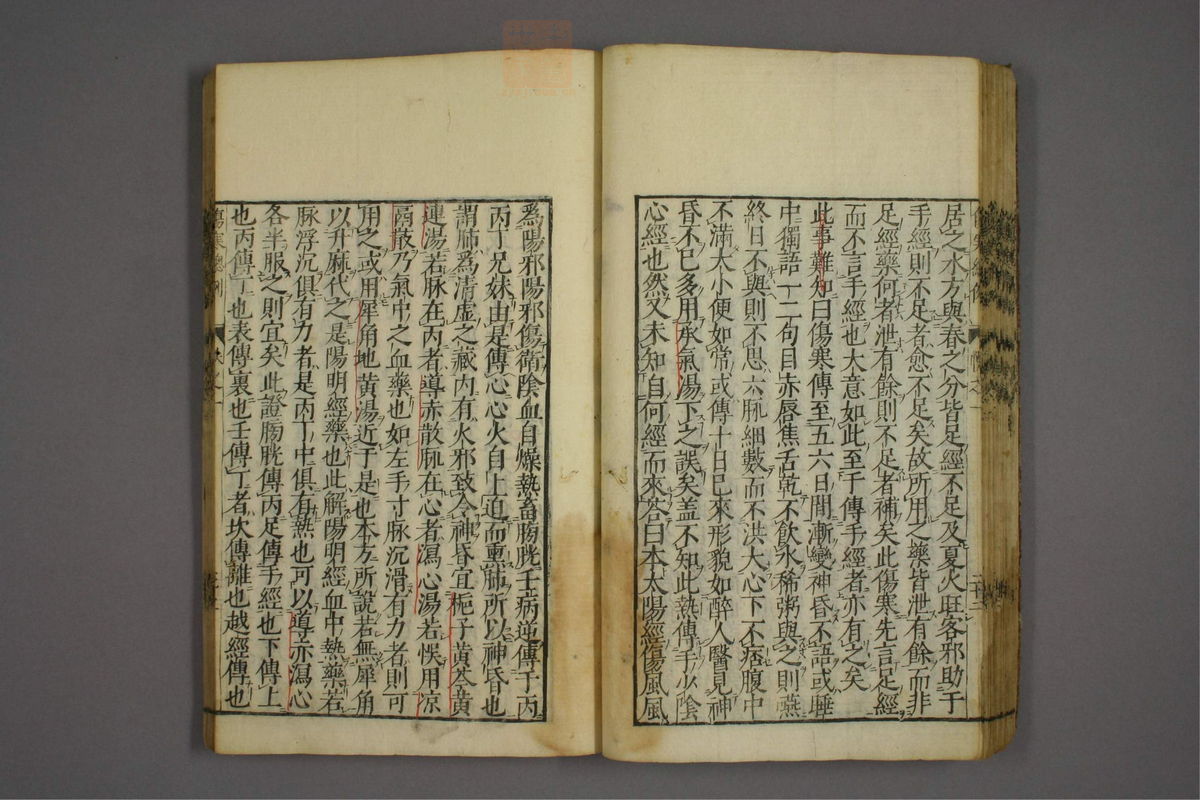 居之水方與春之分皆足經不足及夏火旺客邪助于
手經則不足者愈不足矣故所用之藥皆泄有餘而非
足經藥何者泄有餘則不足者補矣此傷寒先言足經
而不言手經也大意如此至于傳手經者亦有之矣
此事難知曰傷寒傳至五六日間漸變神昏不語或睡
中獨語一二句目赤唇焦舌乾不飲水稀粥與之則嚥
終日不與則不思六脉細數而不洪大心下不痞腹中
不滿大小便如常或傳十日已來形貌如醉人醫見神
昏不已多用承氣湯下之誤矣盖不知此熱傳手少陰
心經也然又未知自何經而來荅曰本太陽經傷風風
爲陽邪陽邪傷衛陰血自燥熱畜膀胱壬病逆傳于丙
丙丁兄妹由是傳心心火自上迫而熏肺所以神昏也
謂肺爲清虚之藏内有火邪致令神昏宜梔子黄芩黄
連湯若脉在丙者導赤散脉在心者瀉心湯若悞用凉
膈散乃氣中之血藥也如左手寸脉沉滑有力者則可
用之或用犀角地黄湯近于是也本方所說若無犀角
以升麻代之是陽明經藥也此解陽明經血中熱藥若
脉浮沉俱有力者是丙丁中俱有熱也可以導赤瀉心
各半服之則宜矣此證膀胱傳丙足傳手經也下傳上
也丙傳丁也表傳裏也壬傳丁者坎傳離也越經傳也
傷寒總例